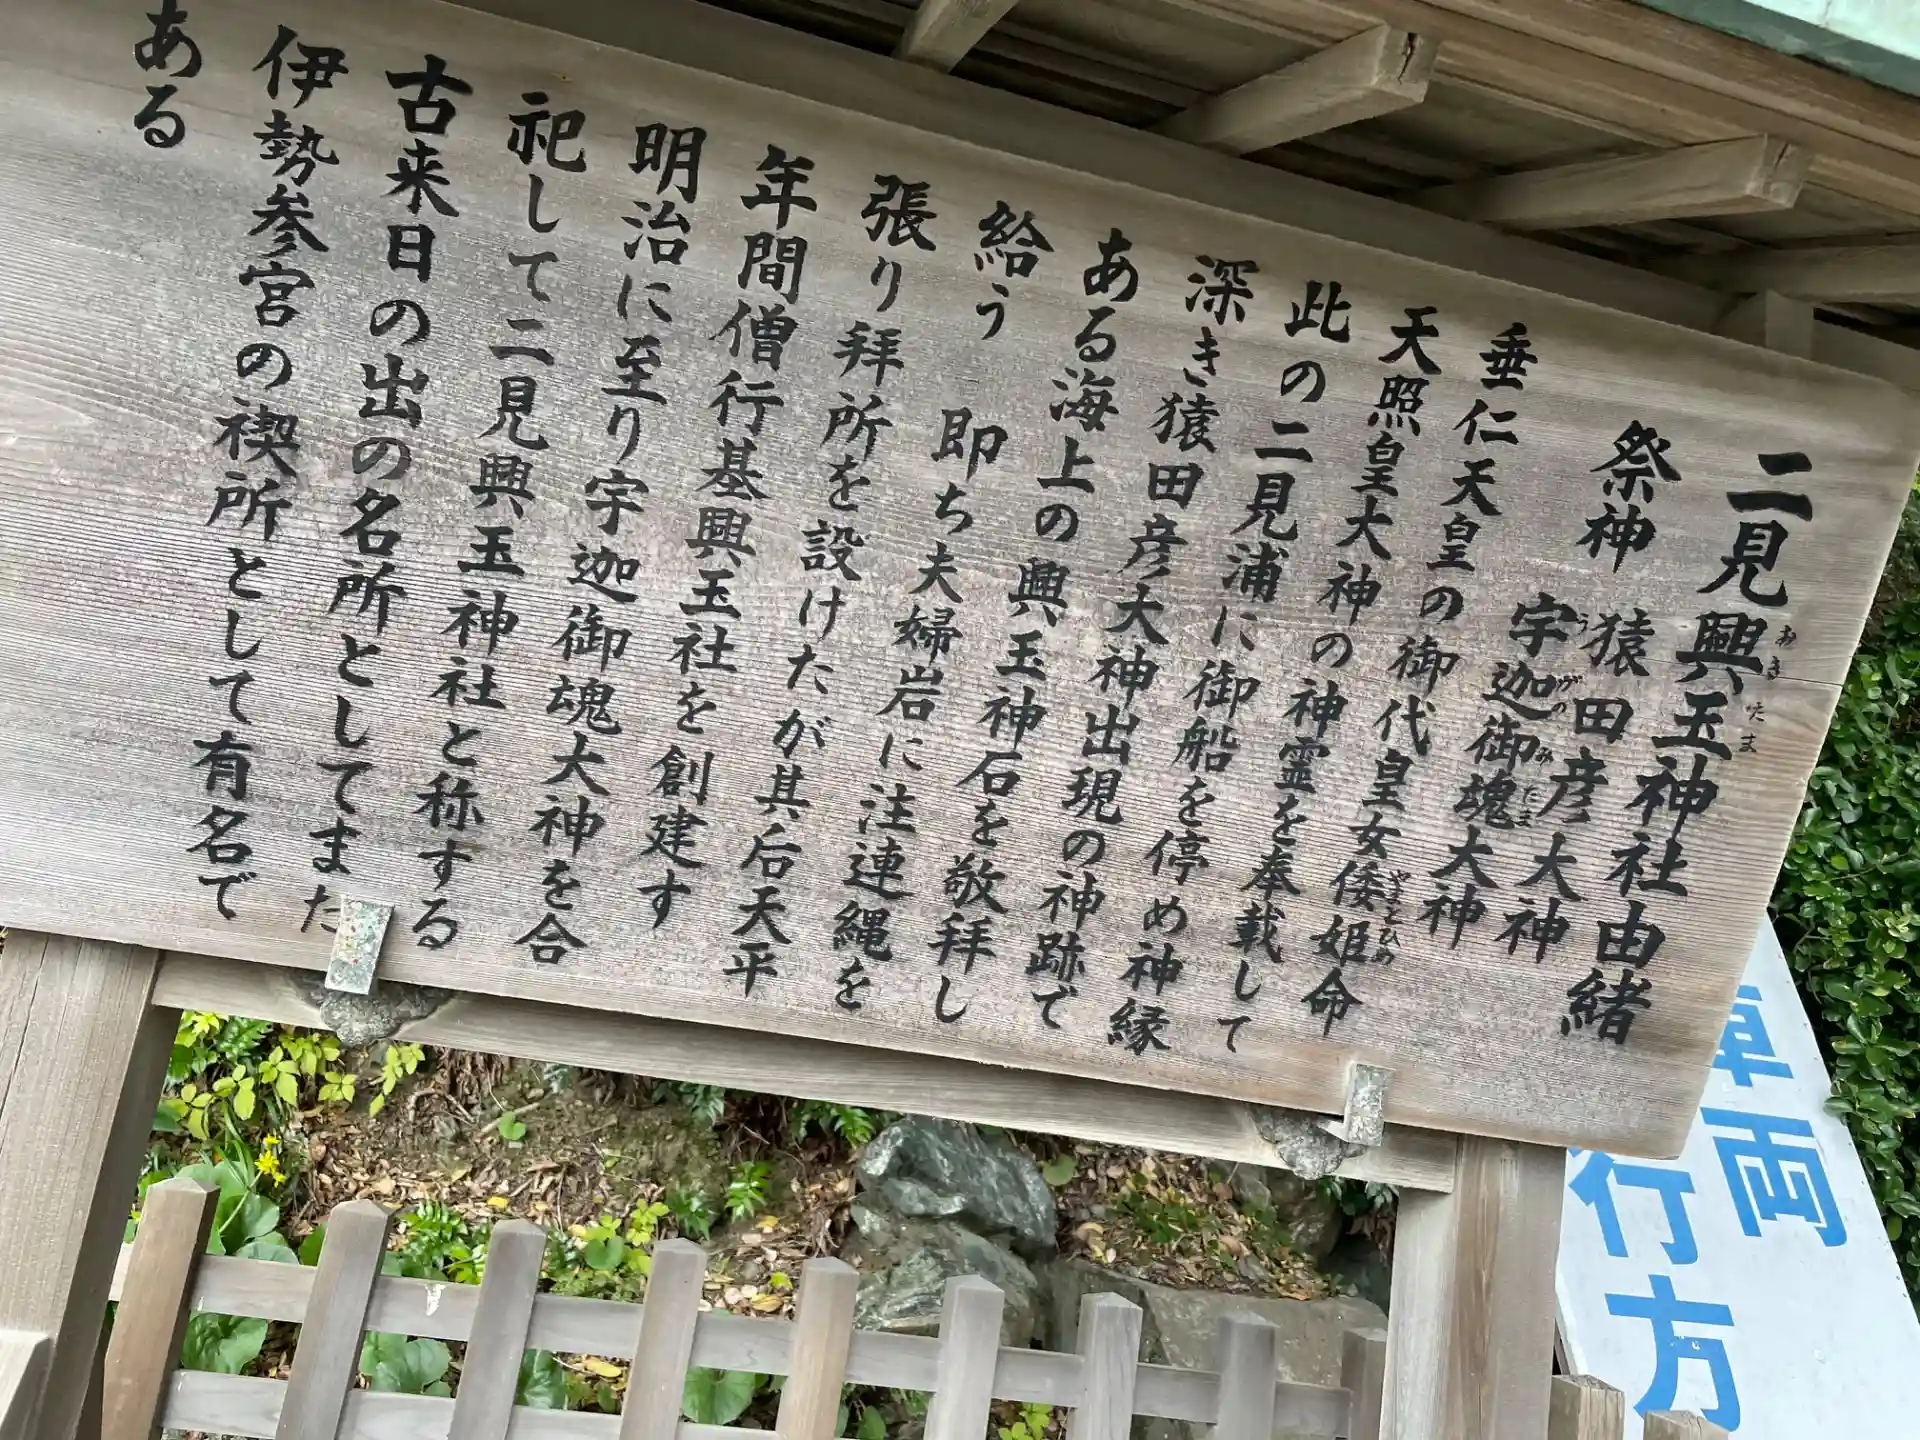 二見興玉神社由緒
おきたま
祭神 猿田彦大神
宇迦御魂大神
うがのみたま
垂仁天皇の御代皇女倭姫命
やまとひめ
天照皇大神の神霊を奉載して
此の二見浦に御船を停め神縁
深き猿田彦大神出現の神跡で
ある海上の興玉神石を敬拝し
給う 即ち夫婦岩に注連縄を
張り拝所を設けたが其后天平
年間僧行基興玉社を創建す
明治に至り宇迦御魂大神を合
祀して二見興玉神社と称する
古来日の出の名所としてまた
伊勢参宮の禊所として有名で
ある
車両
行方